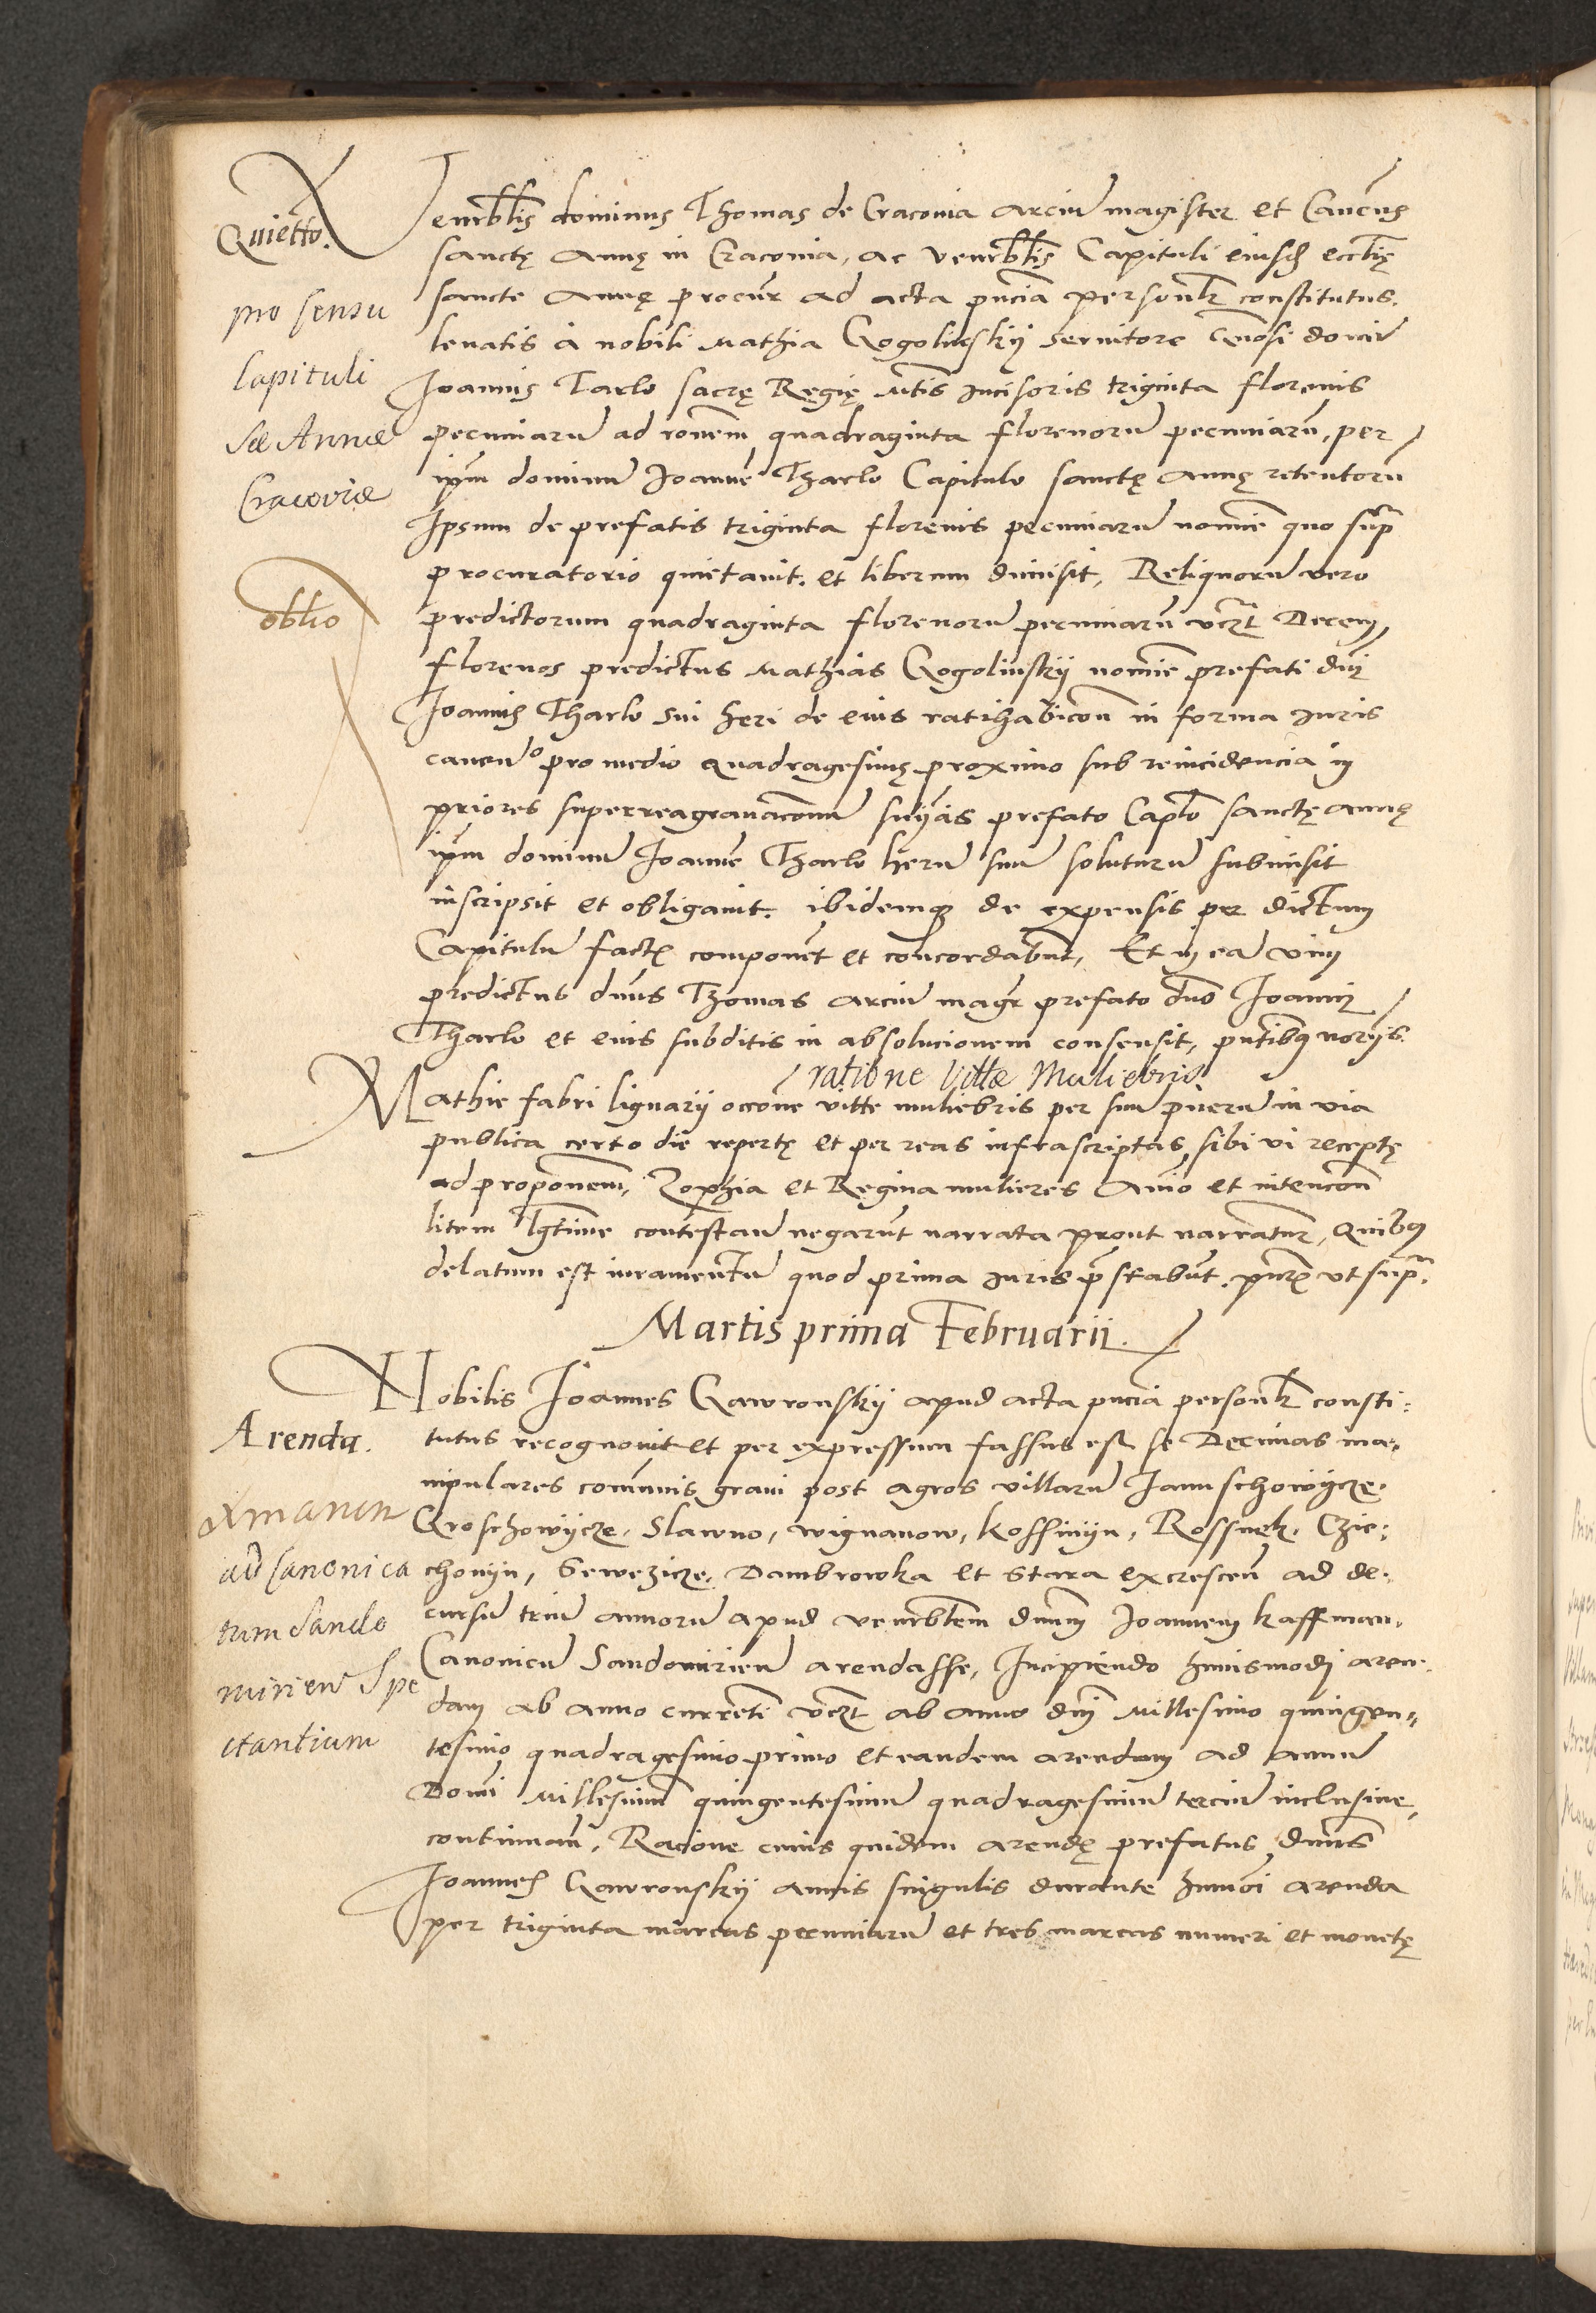 Quietto.
pro sensu
Capituli
Sae Annae
Cracoviae
Venrbblis dominus Thomas de Cracovia arciu magister et Canocus
sanctę Annę in Cracovia, ac Venrbblis Capituli eiusd ecctię
sancte Annę procur ad acta pncia personlr constitutus.
levatis à nobili Mathia Gogolinskij servitore Gnosi domini
Joannis Tarlo sacrę Regię Mtis incisoris triginta florenis
pecuniaru ad ronem quadraginta florenoru pecuniaru, per
ipm dominu Joanne Tharlo Capitulo sanctę Annę retentoru
Ipsum de prefatis triginta florenis pecuniaru nomie quo supra
procuratorio quietavit. et liberum dimisit, Reliquoru vero
oblio
predictorum quadraginta florenoru pecuniaru vczt Decem
florenos predictus Mathias Gogolinskij nomie prefati dni
Joannis Tharlo sui heri de eius ratihabicon in forma iuris
caven° pro medio quadragesimę proximo sub reincidencia in
priores superreagravaconum snyas prefato Caplo sanctę Annę
ipm dominu Joanne Tharlo heru suu soluturu submisit
inscripsit et obligavit. ibidemq de expensis per dictum
Capitulu factis componet et concordabut, Et in ea vim
predictus dnus Thomas arciu magr prefato dno Joanni
Tharlo et eius subditis in absolucionem consensit, pntibq noryis.
ratione Vittae Muliebris
Mathie fabri lignarij occone vitte muliebris per suu pueru in via
publica certo die repertę et per reas infrascriptas, sibi vi receptę
ad proponem, Zophia et Regina mulieres Aio et intencon
litem lgtime contestan negarut narrata prout narratur, Quibq
delatum est iuramentu quod prima iuris prestabut. pntes ut supra.
Martis prima Februarii.
Arenda.
Xmarum
ad Canonica
tum Sando
mirien Spe
ctantium
Nobilis Joannes Gawronskij apud acta pncia personlr consti:
tutus recognovit et per expressum fassus est se Decimas ma:
nipulares communis grani post agros villaru Januschowycze.
Groschowycze, Slawno, Wignanow, Kossinyn, Rossnek, Czie:
chonyn, Sewezicze, Dambrowka et Stara excrescen ad de:
cursu triu annoru apud venrbblem dnum Joannem Kaffman.
Canonicu Sandomirien arendasse, Incipiendo huiusmodi aren:
dam ab anno currenti vczt ab anno dni Millesimo quingen:
tesimo quadragesimo primo et eandem arendam ad annu
Domi Millesimu quingentesimum quadragesimum terciu inclusive,
continuan, Racione cuius quidem arendę prefatus dnus
Joannes Gawronskij annis singulis durante huiusmoi arenda
per triginta marcas pecuniaru et tres marcas numeri et monetę